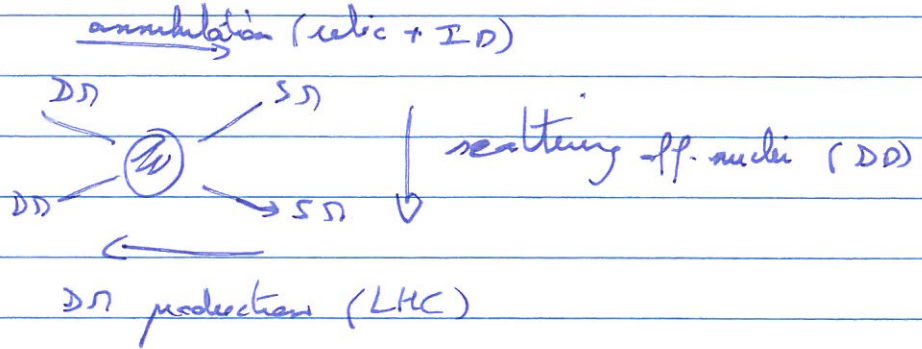 annihilation (relic + ID)
DM SM
scattering off nuclei (DD)
DM SM
DM production (LHC)